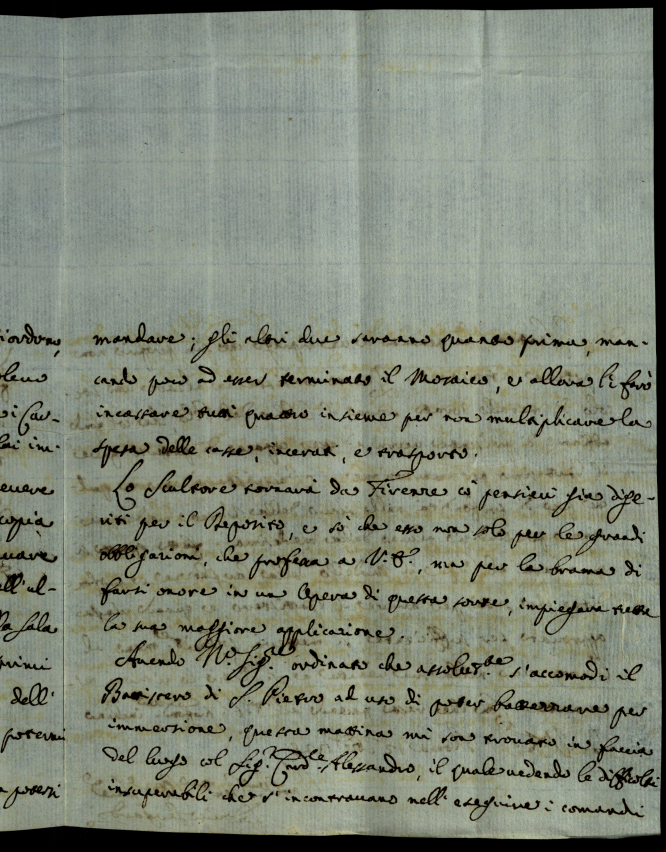 iordono,
mandare; gli altri due saranno quanto prima, man-
cando poco ad esser terminato il Mosaico, e allora li farò
e i Car-
incassare tutti quattro insieme per non multiplicare la
lai im-
spesa delle casse, incerati, e trasporto.
evere
Lo Scultore tornarà da Firenze co' pensieri già dige-
copia
riti per il Deposito, e sò che esso non solo per le grandi
obbligazioni, che professa a V. E., ma per la brama di
all'al-
farsi onore in un'Opera di questa sorte, impiegarà
la Sala
la sua maggiore applicazione.
primi
Avendo N.o Sig.re ordinato che assolut.te s'accomodi il
dell'
Battistero di S. Pietro ad uso di poter battezzare per
potermi
immersione, questa mattina mi son trovato in faccia
del luogo col Sig.r Card.le Alessandro, il quale vedendo le difficoltà
potersi
insuperabili che s'incontravano nell'eseguire i comandi